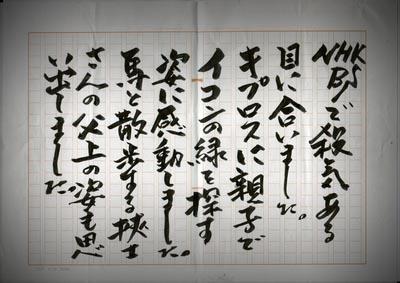 NHK BSで殺気ある
目に合いました。
キプロスに親子で
イコンの緑を探す
姿に感動しました。
馬と散歩する挟士
さんの父上の姿も思
い出しました。